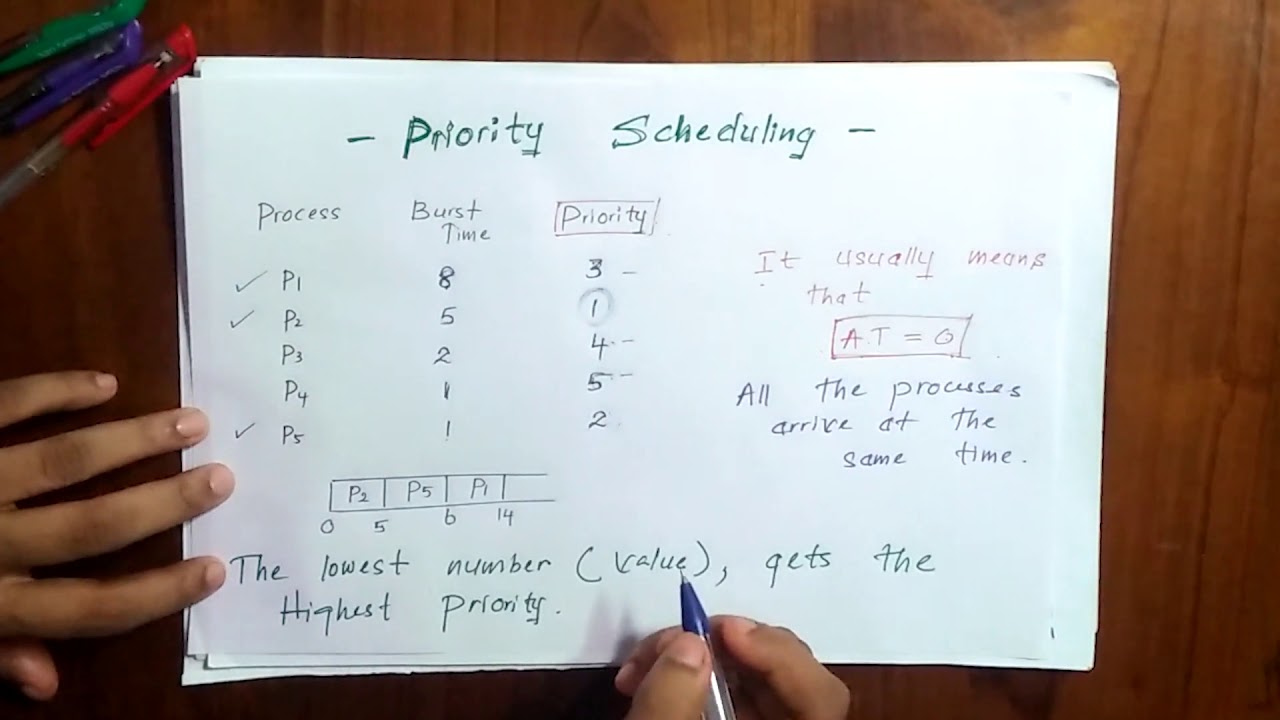 - Priority Scheduling -
Process Burst Time Priority
✓ P1 8 3 -
✓ P2 5 1
P3 2 4 -
P4 1 5 -
✓ P5 1 2
It usually means
that
A.T = 0
All the processes
arrive at the
same time.
P2 P5 P1
0 5 6 14
The lowest number (value), gets the
Highest Priority.